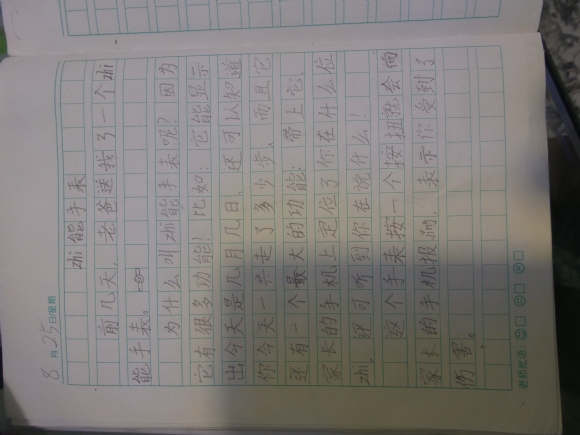 8月25日星期
zhi能手表
前几天,老爸送我了一个zhi
能手表。
为什么叫zhi能手表呢?因为
它有很多功能!比如:它能显示
出今天是几月几日,还可以知道
你今天一共走了多少步。而且它
还有一个最大的功能:带上它,
家长的手机上定位了你在什么位
zhi。还可听到你在说什么!
这个手表按一个按扭就会向
家长的手机报jing,表示你受到了
伤害。
老师批语: